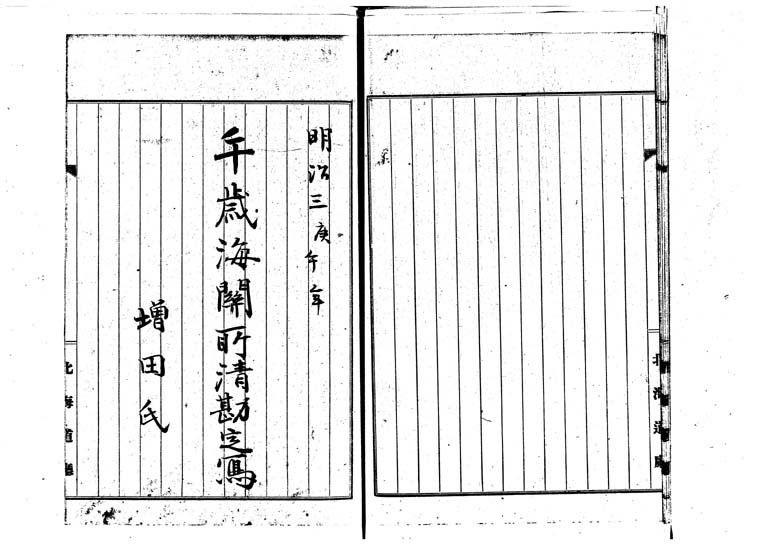 明治三庚午年
午歳海關所清勘定寫
増田氏
北海道廳
北海道廳